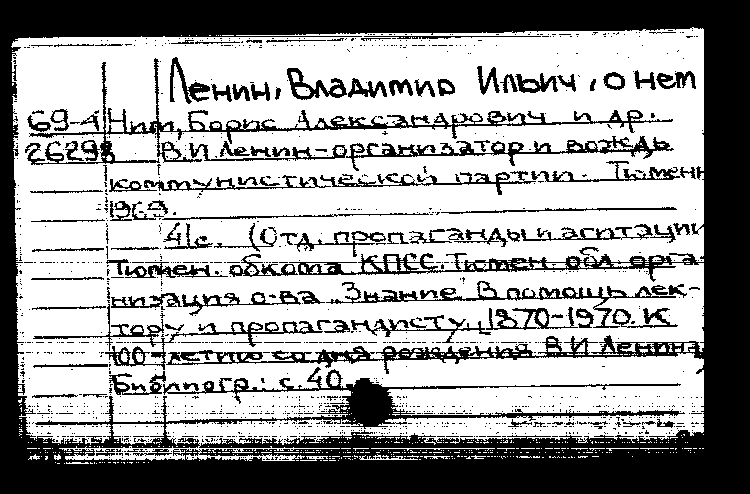 Ленин, Владимир Ильич, о нем
69-4 Нит, Борис Александрович и др.
26298 В.И Ленин-организатор и вождь
коммунистической партии. Тюмень
1969.
41с. (Отд. пропаганды и агитации
Тюмен. обкома КПСС. Тюмен. обл. орга-
низация о-ва „Знание" В помощь лек-
тору и пропагандисту. 1870-1970. К
100-летию со дня рождения В.И Ленина
Библиогр.: с. 40.